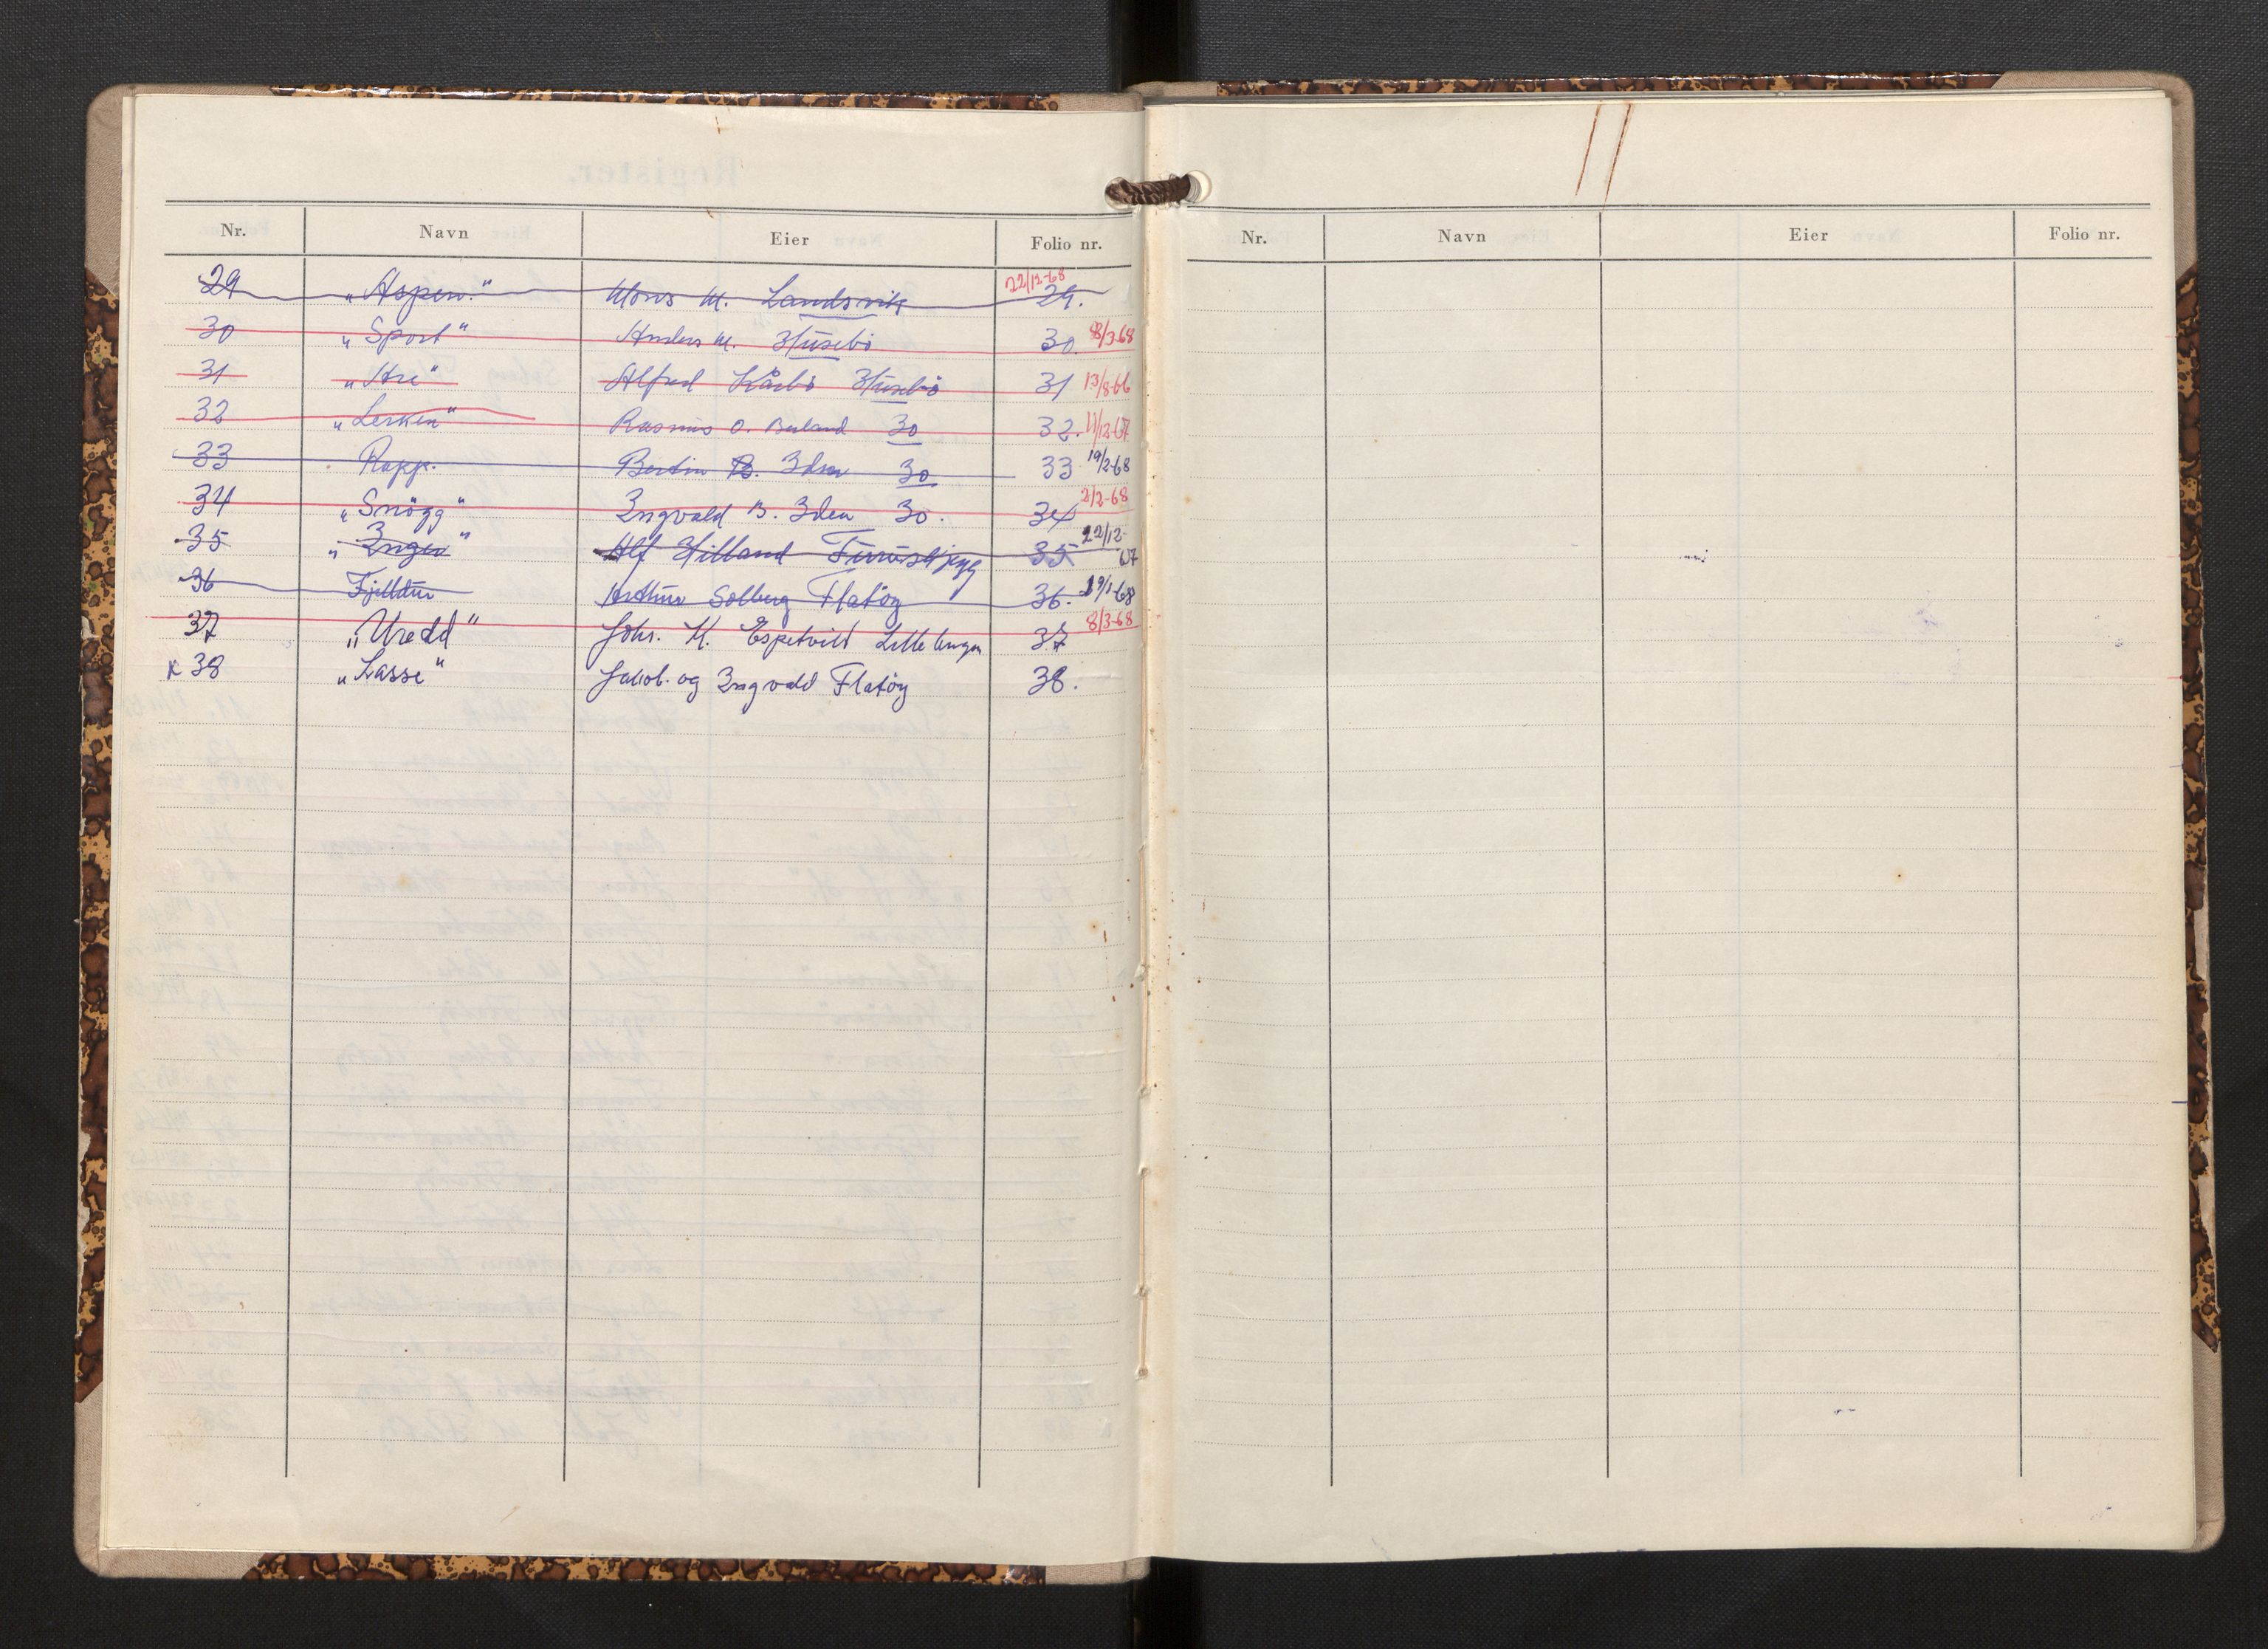 Nr. Navn Eier Folio nr.
29 „Aspen." Mons M. Landsvik 29. 22/12-68
30 „Sport" Anders M. Husebö 30. 8/3-68
31 „Are" Alfred Husebö 31 13/8-66
32 „Lerken" Rasmus O. Berland 30 32. 11/12-67
33 Rapp. Bertin B. Iden 30 33 19/2-68
34 „Snögg" Ingvald B. Iden 30. 34 2/2-68
35 „Inger" Alf Hilland 35 22/12-67
36 Fjelldur Arthur Solberg Flatöy 36. 19/1-68
37 „Uredd" Johs. H. Espetvedt Litlebergen 37 8/3-68
x 38 „Lasse" Jakob. og Ingvald Flatöy 38.
Nr. Navn Eier Folio nr.